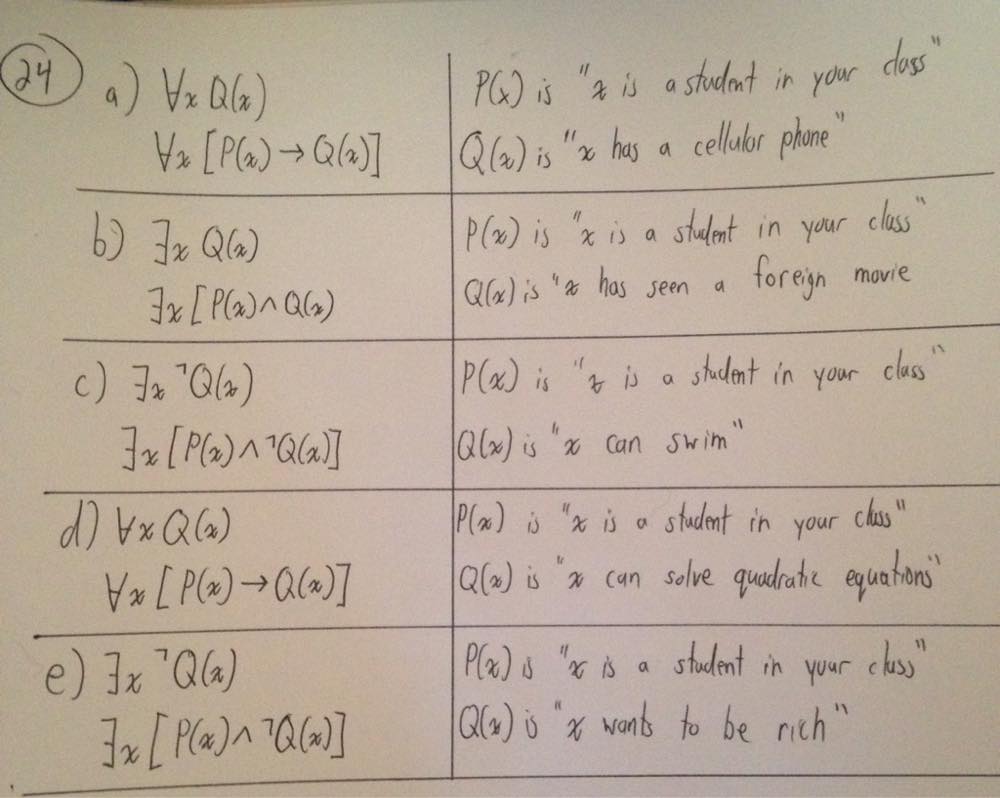 24
a) ∀x Q(x)
P(x) is "x is a student in your class"
∀x [P(x) → Q(x)]
Q(x) is "x has a cellular phone"
b) ∃x Q(x)
P(x) is "x is a student in your class"
∃x [P(x) ∧ Q(x)
Q(x) is "x has seen a foreign movie
c) ∃x ¬Q(x)
P(x) is "x is a student in your class"
∃x [P(x) ∧ ¬Q(x)]
Q(x) is "x can swim"
d) ∀x Q(x)
P(x) is "x is a student in your class"
∀x [P(x) → Q(x)]
Q(x) is "x can solve quadratic equations"
e) ∃x ¬Q(x)
P(x) is "x is a student in your class"
∃x [P(x) ∧ ¬Q(x)]
Q(x) is "x wants to be rich"